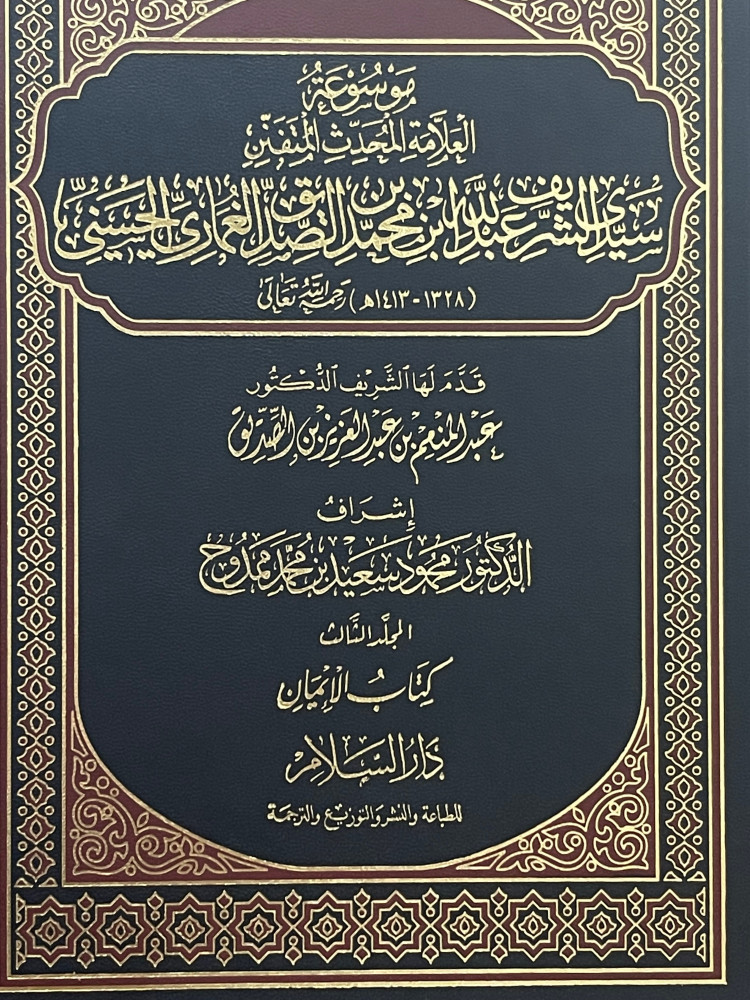 مَوْسُوْعَةُ
العَلَّامَةِ المُحَدِّثِ المُتَفَنِّنِ
سَيِّدِي الشَّرِيف عَبْدِ اللَّهِ ابْنِ مُحَمَّدِ بْنِ الصِّدِّيقِ الغُمَارِيِّ الحَسَنِيِّ
(١٣٢٨-١٤١٣هـ) رَحِمَهُ اللَّهُ تَعَالَى
قَدَّمَ لَهَا الشَّرِيْف الدُّكْتُور
عَبْدُ المُنْعِمِ بْنِ عَبْدِ العَزِيْزِ بْنِ الصِّدِّيْق
إِشْرَافُ
الدُّكْتُورِ مَحْمُود سَعِيْد بْنِ مُحَمَّد مَمْدُوح
المجلَّد الثَّالث
كِتَابُ الإِيْمَانِ
دَارُ السَّلَامِ
للطباعة والنشر والتوزيع والترجمة